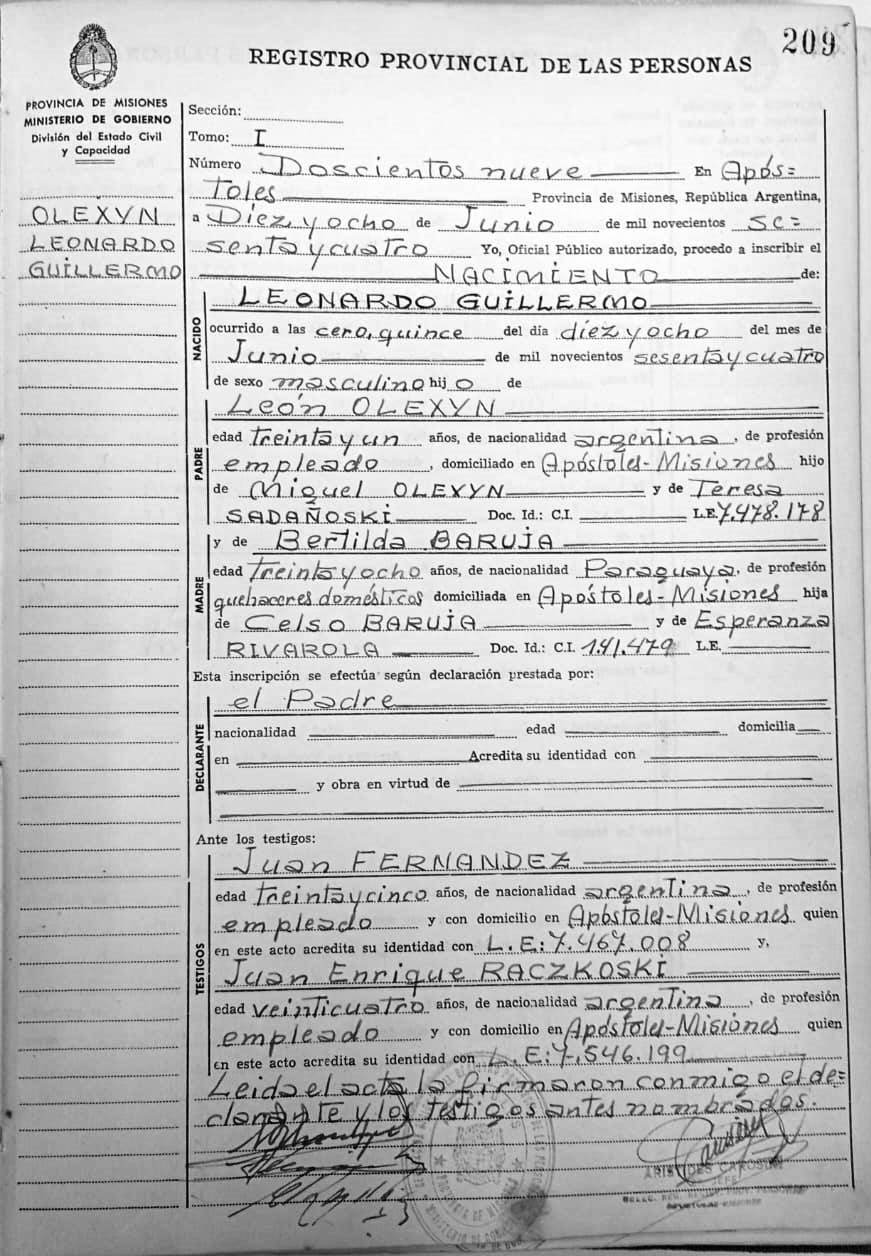 209
REGISTRO PROVINCIAL DE LAS PERSONAS
PROVINCIA DE MISIONES
MINISTERIO DE GOBIERNO
División del Estado Civil
y Capacidad
OLEXYN
LEONARDO
GUILLERMO
Sección:
Tomo: I
Número Doscientos nueve En Após=
toles Provincia de Misiones, República Argentina,
a Diez y ocho de Junio de mil novecientos se=
senta y cuatro Yo, Oficial Público autorizado, procedo a inscribir el
NACIMIENTO de:
NACIDO
LEONARDO GUILLERMO
ocurrido a las cero, quince del día diez y ocho del mes de
Junio de mil novecientos sesenta y cuatro
de sexo masculino hij o de
PADRE
León OLEXYN
edad treinta y un años, de nacionalidad argentina, de profesión
empleado, domiciliado en Apóstoles-Misiones hijo
de Miguel OLEXYN y de Teresa
SADAÑOSKI Doc. Id.: C.I. L.E. 7.478.178
MADRE
y de Bertilda BARUJA
edad treinta y ocho años, de nacionalidad Paraguaya, de profesión
quehaceres domésticos domiciliada en Apóstoles-Misiones hija
de Celso BARUJA y de Esperanza
RIVAROLA Doc. Id.: C.I. 141.479 L.E.
Esta inscripción se efectúa según declaración prestada por:
DECLARANTE
el Padre
nacionalidad edad domicilia
en Acredita su identidad con
y obra en virtud de
Ante los testigos:
TESTIGOS
Juan FERNANDEZ
edad treinta y cinco años, de nacionalidad argentina, de profesión
empleado y con domicilio en Apóstoles-Misiones quien
en este acto acredita su identidad con L.E: 7.467.008 y,
Juan Enrique RACZKOSKI
edad veinticuatro años, de nacionalidad argentina, de profesión
empleado y con domicilio en Apóstoles-Misiones quien
en este acto acredita su identidad con L.E: 7.546.199
Leida el acta la firmaron conmigo el de=
clarante y los testigos antes nombrados.
JEFE